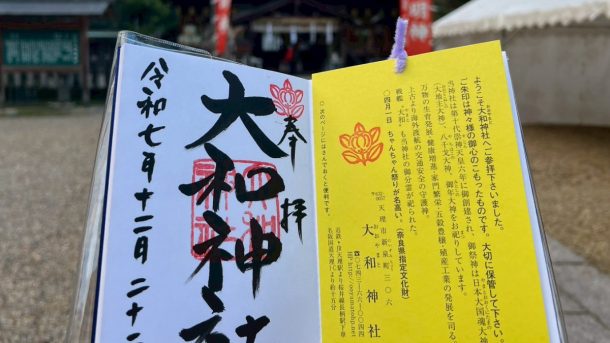 奉拝
大和神社
令和七年十二月二十
ようこそ大和神社へご参拝下さいました。
ご朱印は神々様の御心のこもったものです。大切に保管して下さい。
当神社は第十代崇神天皇六年に御創建され、御祭神は日本大国魂大神
(大地主大神)、八千戈大神、御年大神をお祀りしています。
万物の生育発展、健康増進、家門繁栄、五穀豊穣、殖産工業の発展を司る
上古より海外渡航の交通安全の守護神。
戦艦「大和」も当神社の御分霊が祀られた。
○四月一日 ちゃんちゃん祭りが名高い。(奈良県指定文化財)
天理市新泉町三〇六
大和神社
○このページにはさんでおくと便利です。
明神